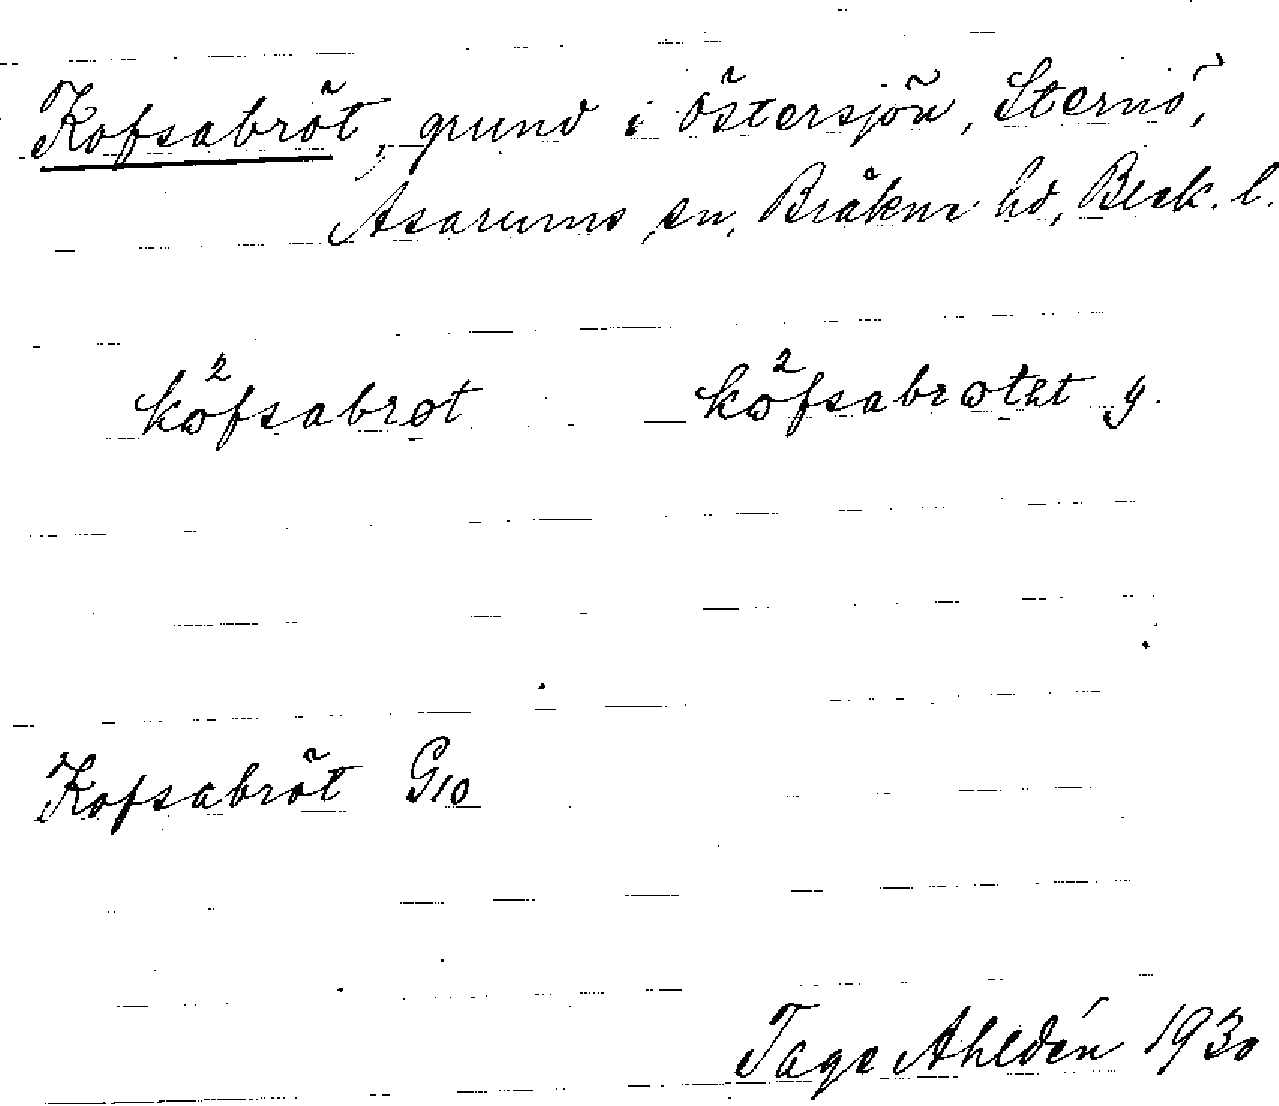 Kofsabröt, grund i Östersjön, Sternö,
Asarums sn, Bräkne hd, Blek. l.
kofsabrøt kofsabrøtet g.
Kofsabröt G10
Tage Ahldén 1930